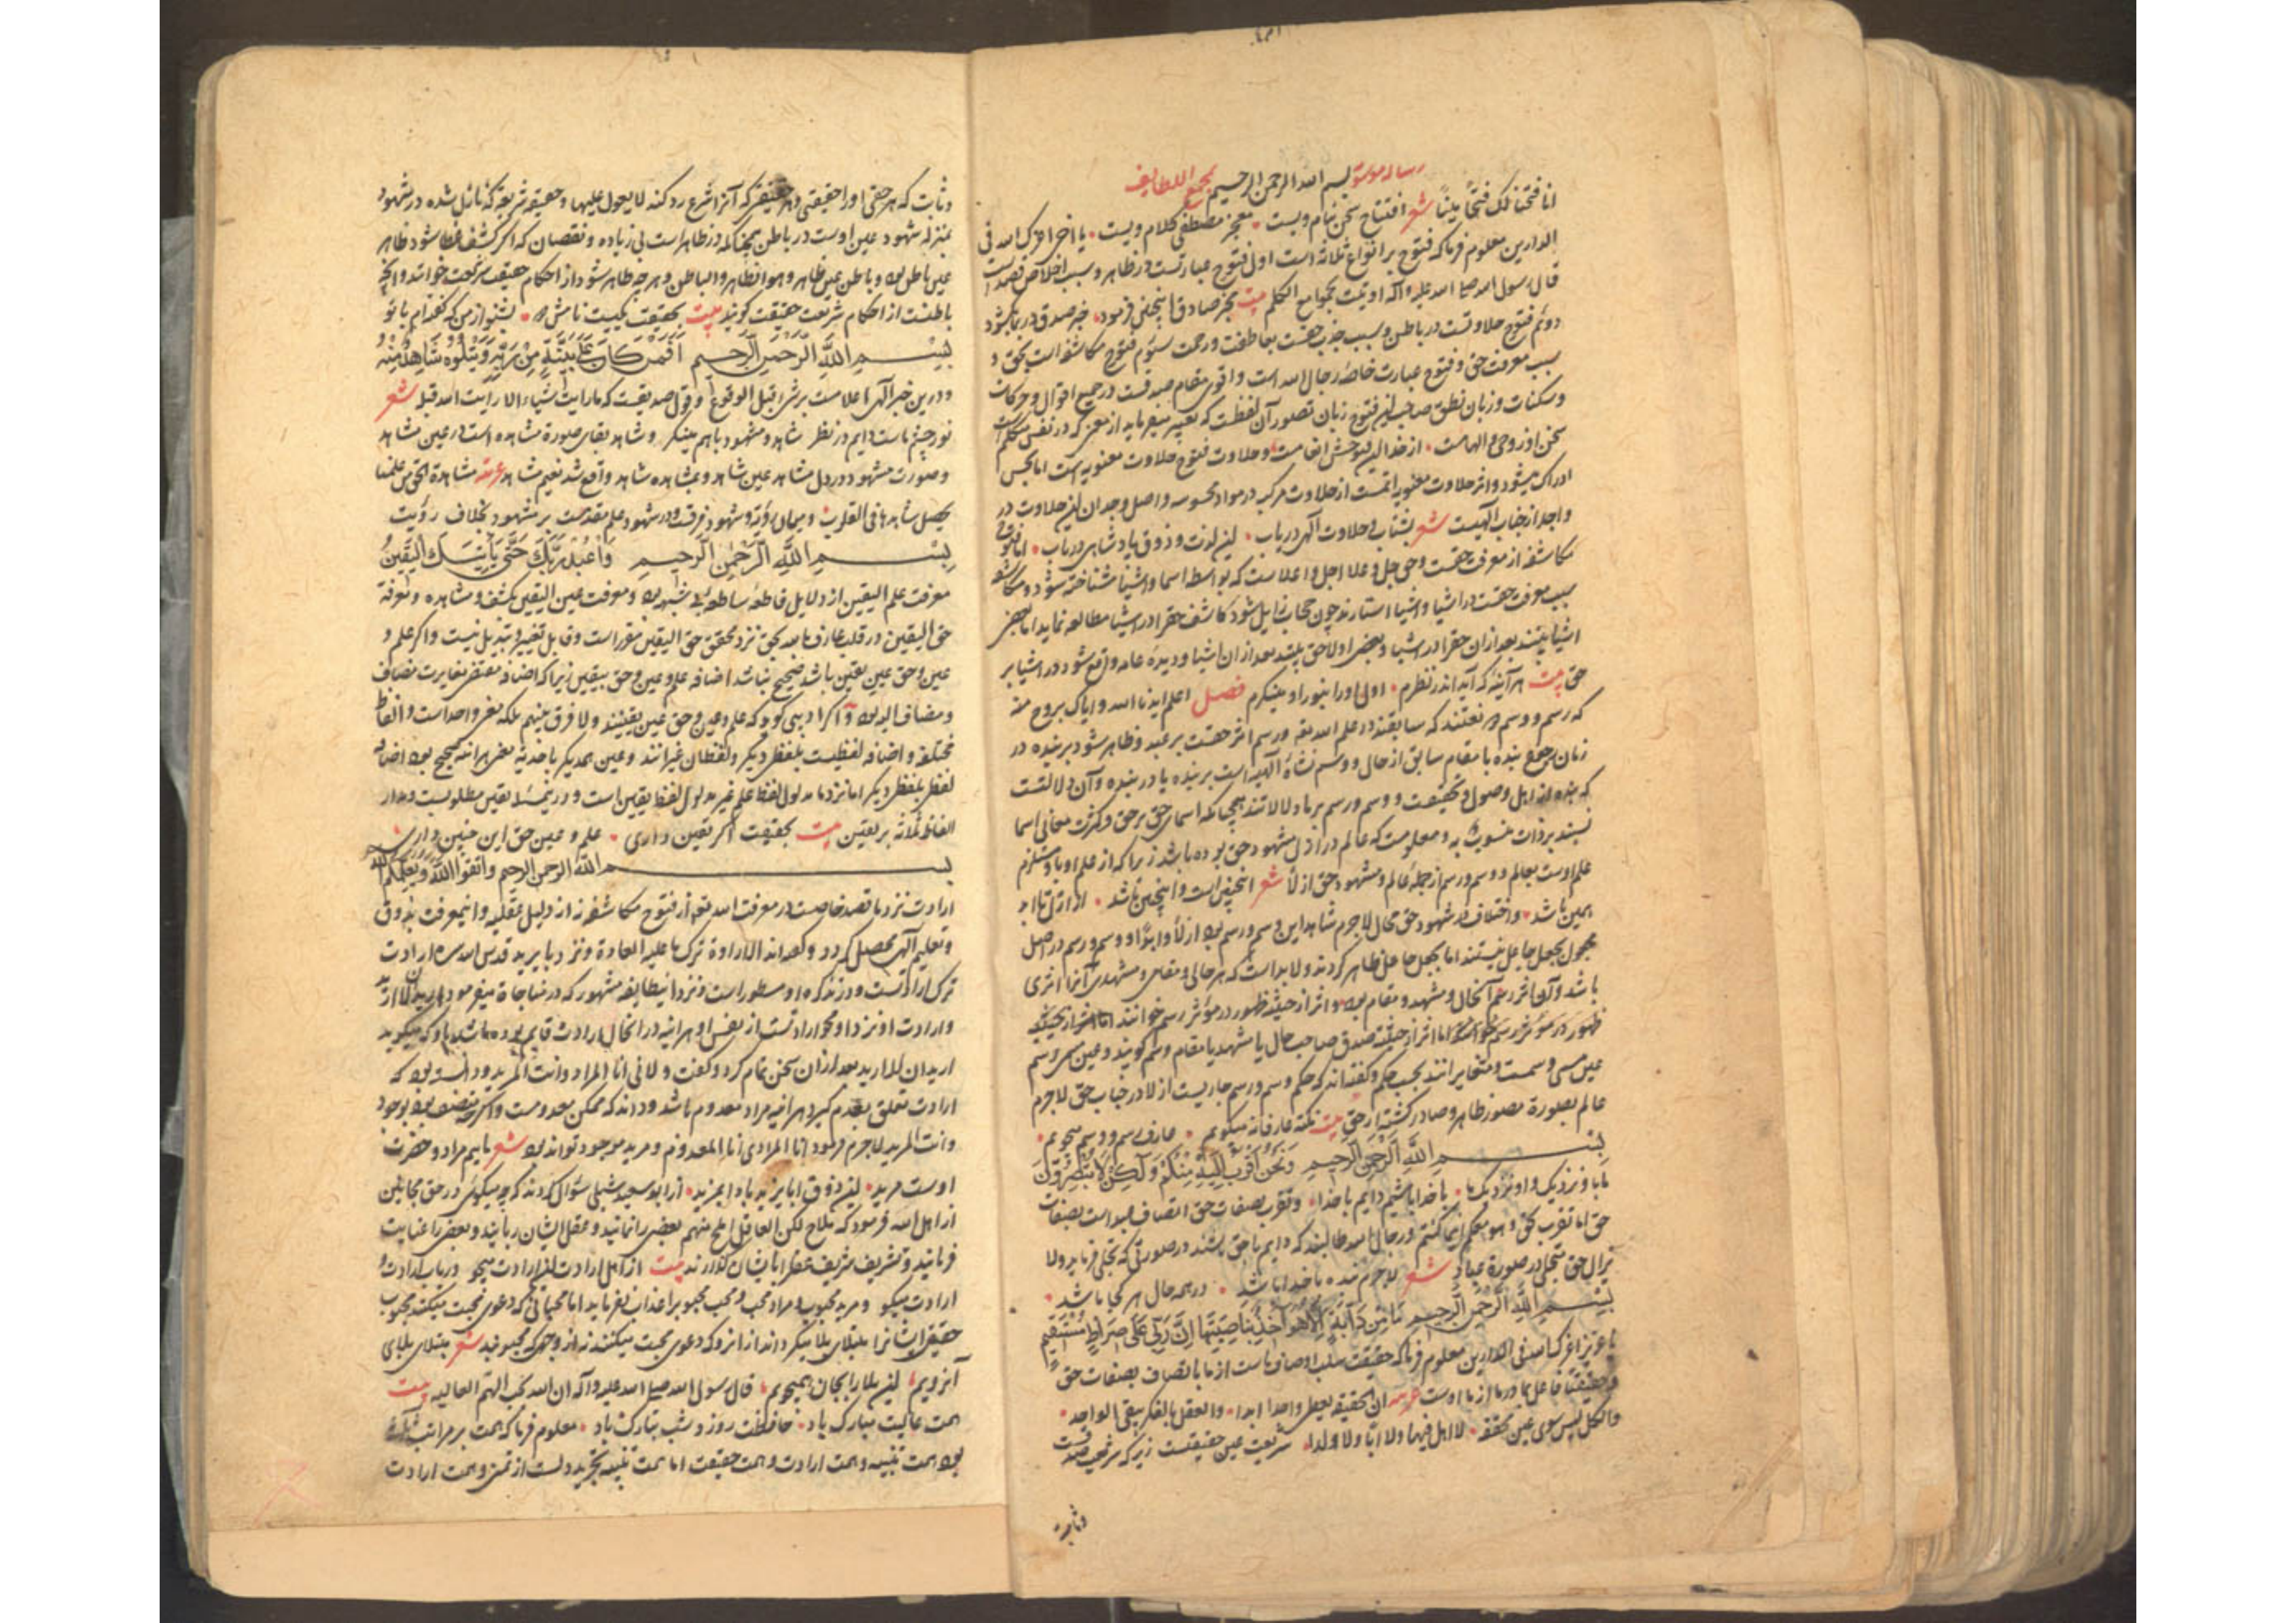 رساله موسوم بسم الله الرحمن الرحیم بمجمع اللطایف
انا فتحنا لک فتحا مبینا شعر افتتاح سخن بنام ویست معجز مصطفی کلام ویست یا اخی اعزک الله فی
الدارین معلوم فرما که فتوح بر انواع ثلاثه است اول فتوح عبارتست در ظاهر و سبب اخلاص قصد است
قال رسول الله صلی الله علیه وآله اوتیت بجوامع الکلم بیت مخبر صادق اینچنین فرمود خبر صدق در بما بگشود
دوم فتوح حلاوتست در باطن و سبب جذب حقست بعاطفت و رحمت سیوم فتوح مکاشفه است بحق و
سبب معرفت حق و فتوح عبارت خاصه رجال الله است و اقوی مقام صدقست در جمیع اقوال و حرکات
و سکنات و زبان نطق صاحب این فتوح زبان تصور آن لفظست که تعبیر میفرماید از معنی که در نفس متکلم است
سخن او ز وحی و الهامست از خدا این فتوحش انعامست و حلاوت فتوح حلاوت معنویه است اما بحس
ادراک میشود و اثر حلاوت معنویه اتمست از حلاوت مرکب در مواد محسوسه و اصل وجدان این حلاوت در
واجد از جناب الهیست شعر بشتاب حلاوت الهی دریاب این لذت و ذوق پادشاهی دریاب اما فتوح
مکاشفه از معرفت حقست و حق جل و علا اجل و اعلاست که بواسطه اسما و اشیا شناخته شود و مکاشفه
سبب معرفت حقست در اشیا و اشیا استارند چون حجاب زایل شود کاشف حق را در اشیا مطالعه نماید اما بعضی
اشیا بینند بعد از ان حق را در اشیا و بعضی اولا حق بینند بعد از ان اشیا و دیده عامه واقع شود در اشیا بر
حق بیت هر آینه که آید اندر نظرم اولی او را بنور او مینگرم فصل اعلم ایدنا الله وایاک بروح منه
که رسم و وسم دو نعتند که سابقند در علم الله تعه و رسم اثر حقست بر عبد و ظاهر شود بر بنده در
زمان رجوع بنده با مقام سابق از حال و وسم نشاه الهیه است بر بنده یا در بنده و آن دلالتست
که بنده از اهل وصول و تحقیقست و وسم و رسم بر ما دلالاتند همچنانکه اسمای حق بر حق و کثرت معانی اسما
نسبند بر ذات منسوب به و معلومست که عالم در ازل مشهود حق بوده باشد زیرا که از علم او با و مستلزم
علم اوست بعالم و وسم و رسم از جمله عالم و مشهود حق ازلا شعر اینچنین است و اینچنین باشد از ازل تا ابد
همین باشد و اختلاف در شهود حق محال لاجرم شاهد این وسم و رسم بود ازلا و ابدا و وسم و رسم در اصل
مجعول بجعل جاعل نیستند اما بجعل جاعل ظاهر گردند و لابد است که هر حالی و مقامی و مشهدی آنرا اثری
باشد و آن اثر رسم آنحال و مشهد و مقام بود و اثر از حیثیه ظهور در مؤثر رسم خوانند اما اثر از حیثیه
ظهور در مؤثر رسم خوانند اما اثر از حیثیه صدق صاحب حال یا مشهد یا مقام وسم گویند و عین رسم
عین مسمی و سمست و متغایرانند بحسب حکم و گفته اند که حکم وسم و رسم جاریست ازلا در جناب حق لاجرم
عالم بصورة مصور ظاهر و صادر گشته از حق بیت نکته عارفانه میگویم عارف رسم و وسم میجویم
بسم الله الرحمن الرحیم وَنَحْنُ أَقْرَبُ إِلَيْهِ مِنْكُمْ وَلَٰكِنْ لَا تُبْصِرُونَ
ما با و نزدیک و او نزدیک ما با خدا باشیم دایم با خدا و تقرب بصفات حق اتصاف عبد است بصفات
حق اما تقرب بحق و هو معکم اینما کنتم و رجال الله طالبند که دایم با حق باشند در صورتی که تجلی فرماید و لا
یزال حق متجلی در صورة عباد شعر لاجرم بنده با خدا باشد در همه حال هر کجا باشد
بسم الله الرحمن الرحیم مَا مِنْ دَابَّةٍ إِلَّا هُوَ آخِذٌ بِنَاصِيَتِهَا إِنَّ رَبِّي عَلَىٰ صِرَاطٍ مُسْتَقِيمٍ
یا عزیز اعزک الله فی الدارین معلوم فرما که حقیقت سلب اوصاف ماست از ما باتصاف بصفات حق
و حقیقتا فاعل بما در ما از ما اوست عربیه ان الحقیقة یعطی واحدا ابدا والعقل بالفکر ینفی الواحد
والکل لیس سوی عین محققه لا اهل فیها ولا ابا ولا ولدا شریعت عین حقیقتست زیرا که شریعت حقست
وثابت
وثابت که هر حقی او را حقیقتی و هر حقیقتی که آنرا شرع رد کند لا یعول علیها و حقیقه شریعه که نازل شده در شهود
بمنزله شهود عین اوست در باطن همچنانکه در ظاهر است بی زیاده و نقصان که اگر کشف غطا شود ظاهر
عین باطن بود و باطن عین ظاهر و هو الظاهر والباطن و هر چه ظاهر شود از احکام حقیقت شریعت خوانند و آنچه
باطنست از احکام شریعت حقیقت گویند بیت بحقیقت یکیست نامش دو بشنو از من که گفته ام با تو
بسم الله الرحمن الرحیم أَفَمَنْ كَانَ عَلَىٰ بَيِّنَةٍ مِنْ رَبِّهِ وَيَتْلُوهُ شَاهِدٌ مِنْهُ
و درین خبر الهی اعلامست بر شیء قبل الوقوع و قول صدیقست که ما رایت شیئا الا رایت الله قبله شعر
نور چشم ماست دایم در نظر شاهد و مشهود باهم مینگر و شاهد بقای صورة مشاهده است در عین مشاهد
و صورت مشهود در دل مشاهد عین شاهد و بمشاهده شاهد واقع شد نعیم مشاهد عربیه مشاهدة الحق من علمنا
یحصل شاهدها فی القلوب و میان رؤیة و شهود فرقست و در شهود علم مقدمست بر مشهود بخلاف رؤیت
بسم الله الرحمن الرحیم وَاعْبُدْ رَبَّكَ حَتَّىٰ يَأْتِيَكَ الْيَقِينُ
معرفت علم الیقین از دلایل قاطعه ساطعه بی شبهه بود و معرفت عین الیقین بکشف و مشاهده و معرفة
حق الیقین در قلب عارف بالله بحق نزد محقق حق الیقین مقرر است و قابل تغییر و تبدیل نیست و اگر علم و
عین و حق عین یقین باشد صحیح نباشد اضافه علم و عین و حق بیقین زیرا که اضافه مقتضی مغایرت مضاف
و مضاف الیه بود و اگر ادیبی گوید که علم و عین و حق عین یقینند و لا فرق بینهم بلکه معنی واحد است و الفاظ
مختلفه و اضافه لفظیست بلفظی دیگر و لفظان غیرانند و عین همدیگر باحدیه معنی هر آینه صحیح بود اضافه
لفظی بلفظی دیگر اما نزد ما مدلول لفظ علم غیر مدلول لفظ یقین است و در نیمسله یقین مطلوبست و مدار
الفاظ ثلاثه بر یقین بیت بحقیقت اگر یقین داری علم و عین حق این چنین داری
بسم الله الرحمن الرحیم واتقوا الله ویعلمکم الله
ارادت نزد ما قصد خاصست در معرفت الله تعه از فتوح مکاشفه نه از دلیل عقلیه و اینمعرفت بذوق
و تعلیم الهی محصل گردد و گفته اند الارادة ترک ما علیه العادة و نزد بایزید قدس الله سره ارادت
ترک ارادتست و در تذکره او مسطور است و نزد اینطایفه مشهور که در مناجاة میفرمود ارید ان لا ارید
و ارادت او نزد او محو ارادتست از نفس او هر اینه در انحال ارادت قایم بوده باشد باو که میگوید
ارید ان لا ارید بعد از ان سخن تمام کرد و گفت و لانی انا المراد وانت المرید و دانسته بود که
ارادت تعلق بعدم گیرد هر آینه مراد معدوم باشد و داند که ممکن معدومست و اگرچه متصف بود بوجود
وانت المرید لاجرم فرمود انا المراد ای انا المعدوم و مرید موجود تواند بود شعر ماییم مراد و حضرت
اوست مرید این ذوق ابا یزید بادا بمزید از ابو سعید شبلی سؤال کردند که چه میگوئی در حق مجانین
از اهل الله فرمود که ملاح لکن العاقل املح منهم بعضی را نمانید و عقل ایشان ربایند و بعضی را عنایت
فرمایند و تشریف شریف عقل را بایشان گذارند بیت از اهل ارادت این ارادت میجو در باب ارادت
ارادت میگو و مرید محبوب و مراد محب و محب محبوب را عذاب نفرماید اما محبانی که دعوی محبت میکنند محبوب
حقیقی ایشانرا مبتلای بلا میگرداند از انرو که دعوی محبت میکنند نه از وجهی که محبوبند شعر مبتلای بلای
آنرویم این بلا را بجان همیجویم قال رسول الله صلی الله علیه وآله ان الله یحب الهمم العالیه بیت
همت عالیت مبارک باد حافظت روز و شب تبارک باد معلوم فرما که همت بر مراتب ثلاثه
بود همت تنبیه و همت ارادت و همت حقیقت اما همت تنبیه تجرید دلست از تمنی و همت ارادت